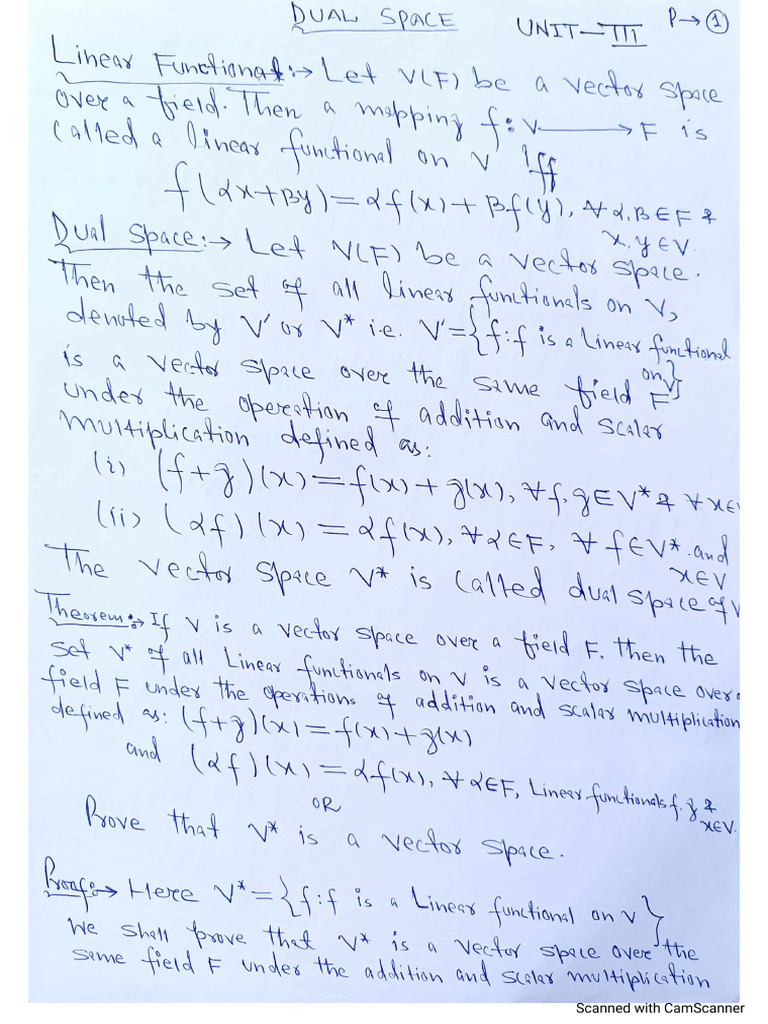 DUAL SPACE UNIT-III P→①
Linear Functional:→ Let V(F) be a vector space
over a field. Then a mapping f: V ⟶ F is
called a linear functional on V iff
f(αx+βy)=αf(x)+βf(y), ∀ α,β∈F &
x,y∈V.
Dual Space:→ Let V(F) be a vector space.
Then the set of all linear functionals on V,
denoted by V' or V* i.e. V'={f:f is a Linear functional
on V}
is a vector space over the same field F
under the operation of addition and scalar
multiplication defined as:
(i) (f+g)(x)=f(x)+g(x), ∀ f,g∈V* & ∀ x∈V
(ii) (αf)(x)=αf(x), ∀ α∈F, ∀ f∈V* and
x∈V
The vector space V* is called dual space of V
Theorem:→ If V is a vector space over a field F, then the
set V* of all Linear functionals on V is a vector space over
field F under the operations of addition and scalar multiplication
defined as: (f+g)(x)=f(x)+g(x)
and (αf)(x)=αf(x), ∀ α∈F, Linear functionals f,g &
x∈V.
OR
Prove that V* is a vector space.
Proof:→ Here V*={f:f is a Linear functional on V}
We shall prove that V* is a vector space over the
same field F under the addition and scalar multiplication
Scanned with CamScanner